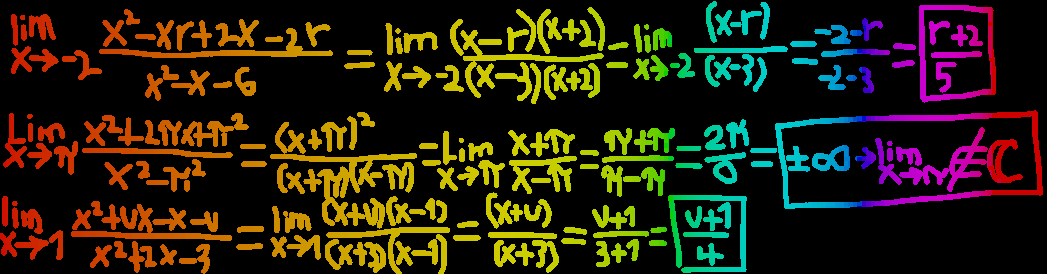 lim x→-2 (x²-xr+2x-2r)/(x²-x-6) = lim x→-2 ((x-r)(x+2))/((x-3)(x+2)) = lim x→-2 (x-r)/(x-3) = (-2-r)/(-2-3) = (r+2)/5
Lim x→π (x²+2πx+π²)/(x²-π²) = (x+π)²/((x+π)(x-π)) = Lim x→π (x+π)/(x-π) = (π+π)/(π-π) = 2π/0 = ±∞ → lim x→π ∉ ℂ
lim x→1 (x²+vx-x-v)/(x²+2x-3) = lim x→1 ((x+v)(x-1))/((x+3)(x-1) = (x+v)/(x+3) = (v+1)/(3+1) = (v+1)/4